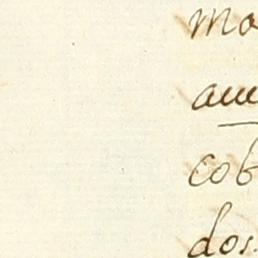 ma
aue
cob
dos